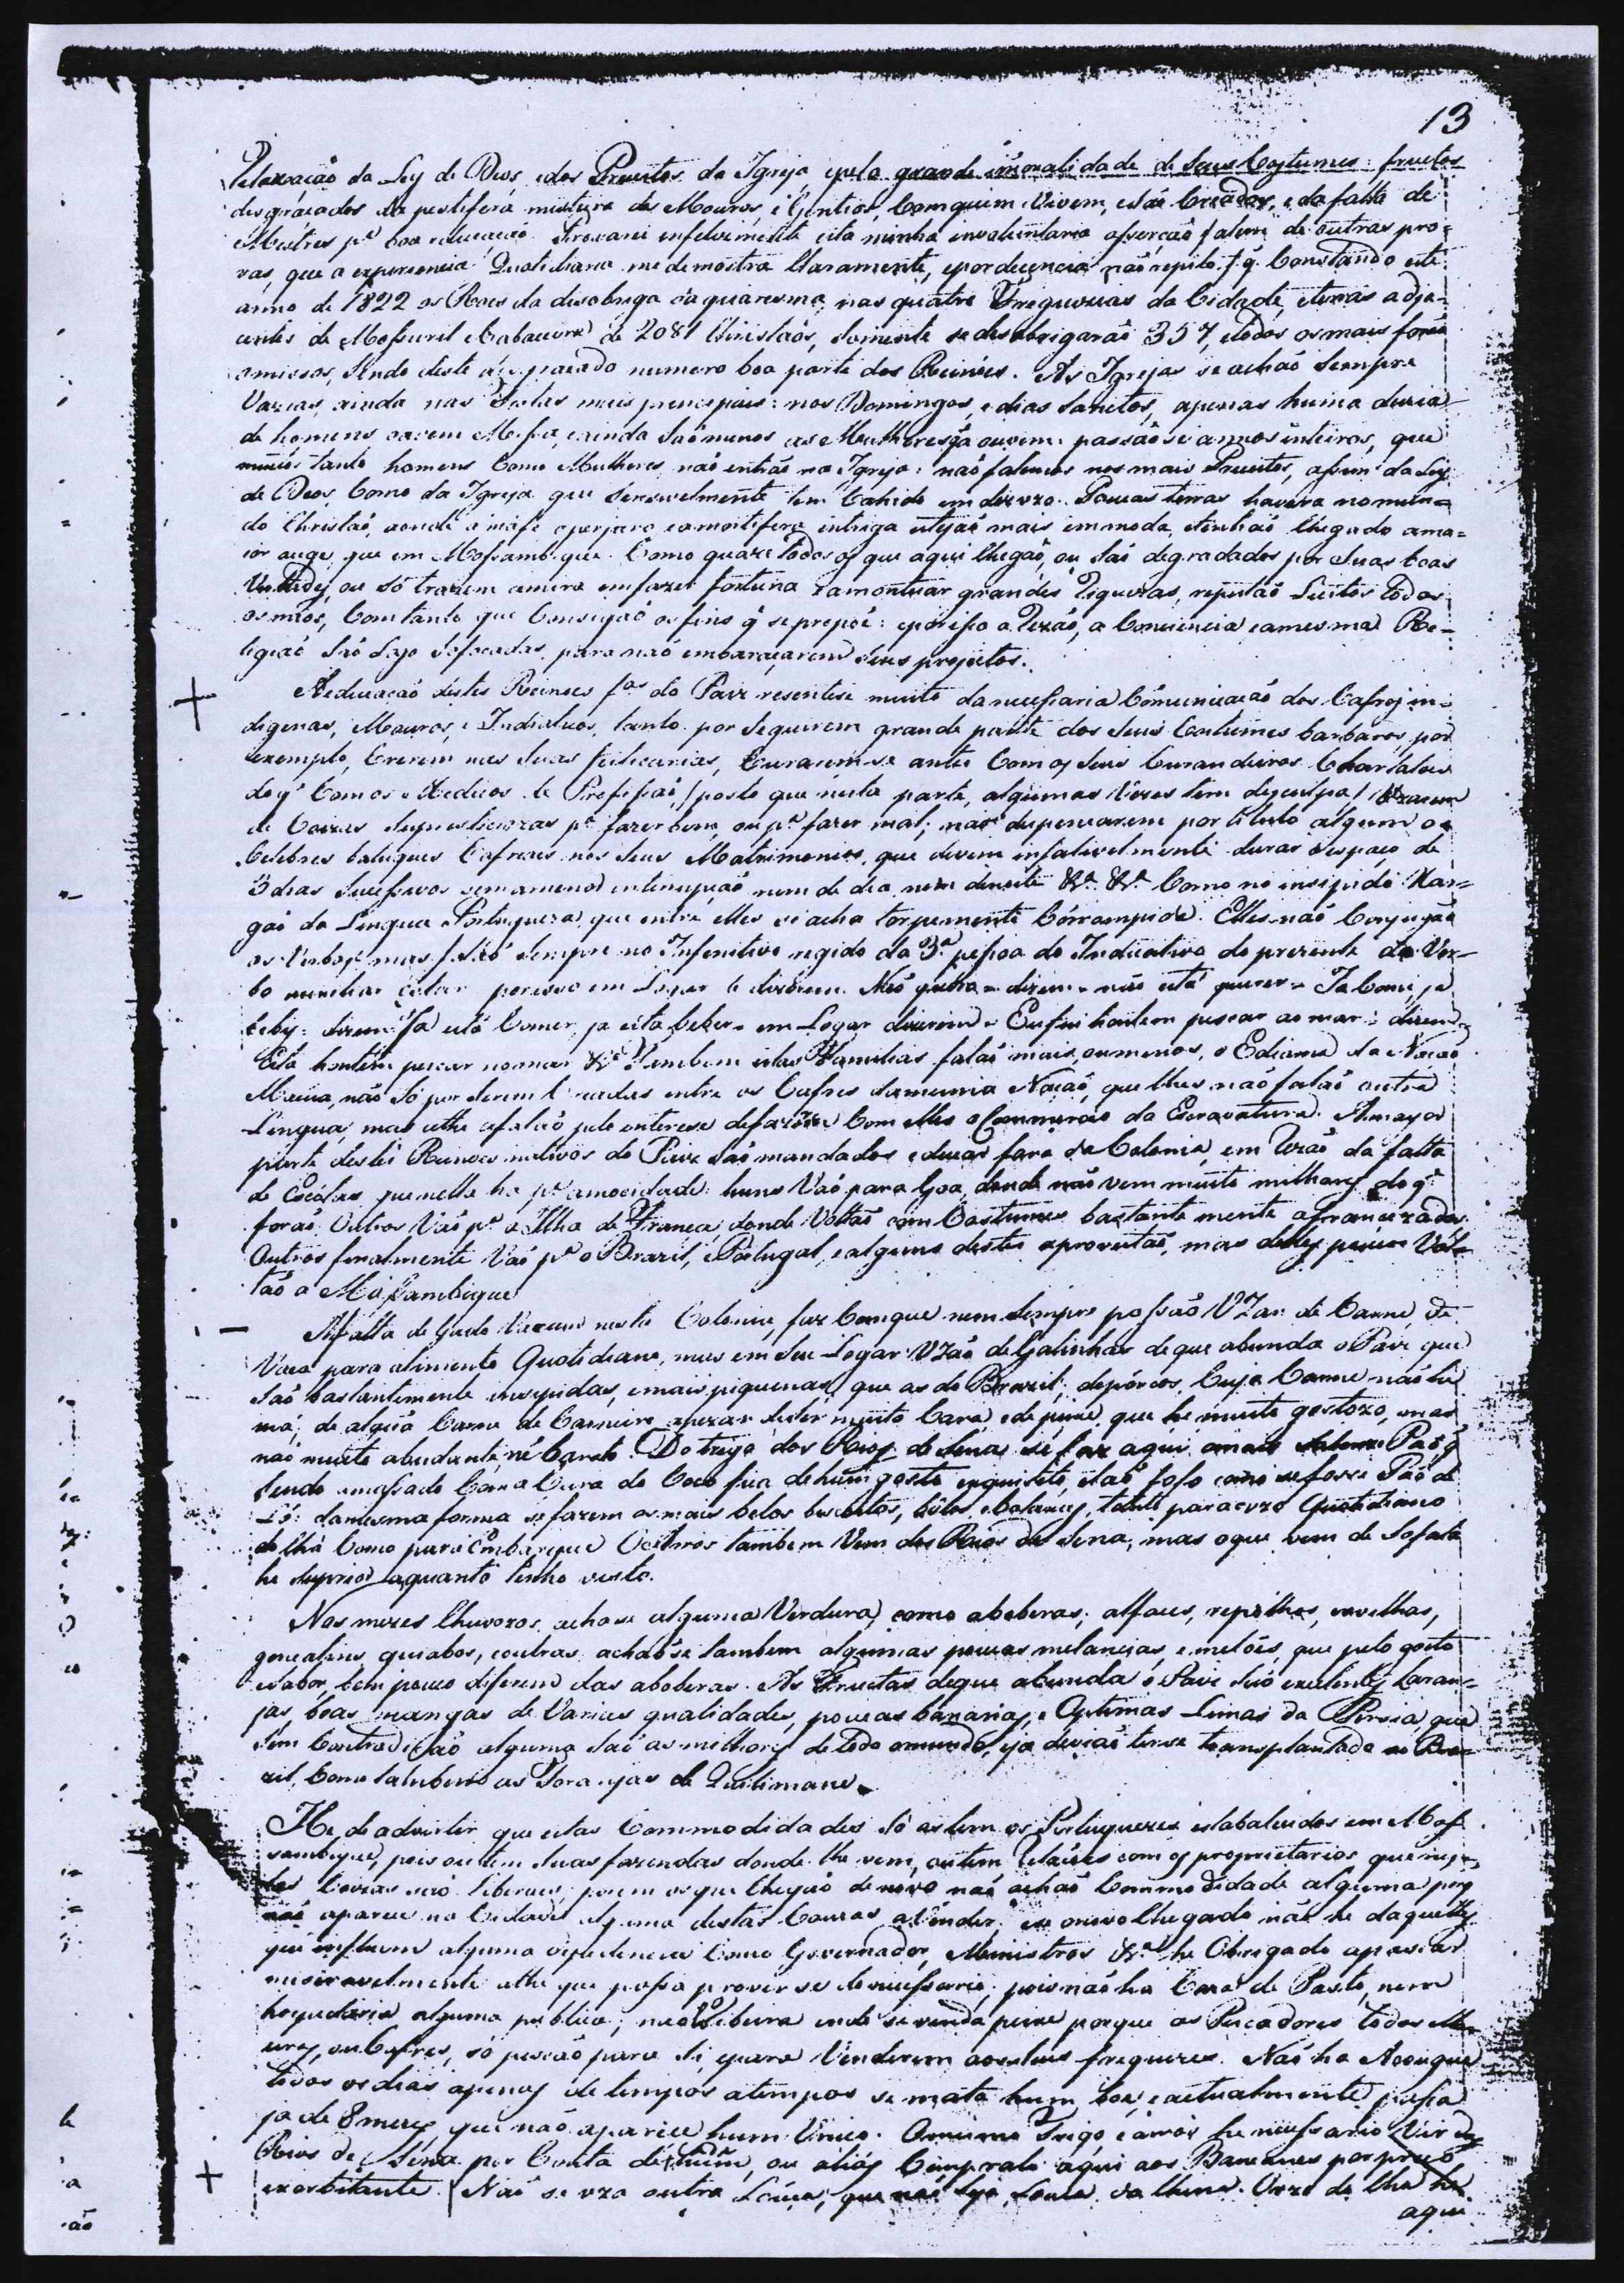 13
Relaxação da Ley de Deos, e dos Preceitos da Igreja, e pela grande immoralidade de seus Costumes: fructos
desgraçados da pestifera mistura dos Mouros, e Gentios, Com quem Vivem, e são Creados, e da falta de
Mestres pª boa educação. Provara infelismente esta minha involuntaria asserção / alem de outras pro=
vas, que a experiencia Quotidiana me demostra Claramente, e por decencia não repito / q̃ Constando este
anno de 1822 os Roes da desobriga da quaresma, nas quatro Freguezias da Cidade, e terras adja=
centes de Mossuril e Cabaceira de 2081 Christãos, somente se desobrigarão 357, e todos os mais forão
omissos, sendo deste numero boa parte dos Reinóes. As Igrejas se achão Sempre
Vazias, ainda nas Festas mais principais: nos Domingos, e dias Sanctos, apenas huma duzia
de homens ouvem Missa, e ainda são menos as Mulheres q̃ a ouvem: passão-se annos inteiros, que
muitos tanto homens Como Mulheres, não entrão na Igreja: não falemos nos mais Preceitos, assim da Ley
de Deos, Como da Igreja que sensivelmente tem Cahido em desuzo. Poucas terras haverá no mun=
do Christão, aonde a má fé, o perjuro, e a mortifera intriga estejão mais em moda, e tenhão Chegado a ma=
ior auge, que em Mossambique. Como quaze todos os que aqui Chegão, ou são degradados por suas boas
Virtudes, ou só trazem a mira em fazer fortuna, e amontuar grandes Riquezas, reputão Licitos todos
os meios, Com tanto que Consigão os fins q̃ se propõe: e por isso a Rezão, a Conciencia e a mesma Re=
ligião são logo sofocadas, para não embaraçarem seus projectos.
+ A educação destes Reinoes fos do Paiz resentese muito da necessaria Comunicação dos Cafres in=
digenas, Mouros, e Indiaticos, tanto por seguirem grande parte dos seus Costumes barbaros, por
exemplo, Crerem nas suas feiticarias, Curarem-se antes Com os seus Curandeiros Charlatães
do q̃ Com os Medicos de Profissão, / posto que nesta parte, algumas Vezes tem desculpa / Uzarem
de Coizas supersticiozas pª fazer bem, ou pª fazer mal; não dispensarem por titulo algum os
Celebres batuques Cafreaes nos seus Matrimonios, que devem infalivelmente durar o espaço de
3 dias sucessivos sem a menor interrupção, nem de dia nem de noite &ª &ª Como no insipido Xar=
gão da Lingua Portugueza, que entre elles se acha torpemente Corrompida. Elles não Conjugão
os Verbos, mas só sempre no Infinitivo regido da 3ª pessoa do Indicativo do prezente do Ver=
bo auxiliar estar, por isso em Lugar de dizerem. Não quero = dizem = não está querer = Ja Comi, ja
bebi = dizem = Ja está Comer, ja está beber = em Logar dizerem = Eu fui hontem pescar ao mar: dizem =
Está hontem pescar no mar &ª Tambem estas Familias falão mais, ou menos, o Edioma da Nação
Macua, não só por serem Creadas entre os Cafres da mesma Nação, que lhes não falão outra
Lingua, mas athe a falão pelo interesse de fazerem Com elles o Commercio da Escravatura. A mayor
parte destes Reinoes nativos do Paiz são mandados educar fora da Colonia, em rezão da falta
de Escolas que nella ha pª a mocidade: huns Vão para Goa, donde não vem muito milhores do q̃
forão. Outros Vão pª a Ilha de França, donde Voltão com Costumes bastantemente afrancezados.
Outros finalmente Vão pª o Brazil, e Portugal, e alguns destes aproveitão, mas delles poucos Vol=
tão a Mossambique
— A falta de Gado Vacum nesta Colonia, faz Com que nem sempre possão Uzar de Carne de
Vaca para alimento Quotidiano, mas em seu Logar Uzão de Galinhas de que abunda o Paiz que
são bastantemente insipidas, e mais piquenas, que as do Brazil; de pórcos, Cuja Carne não he
má; de algũa Carne de Carneiro, apezar de ser muito Cara, e de peixe, que he muito gostozo, mas
não muito abundante, nẽ barato. Do trigo dos Rios de Sena se faz aqui o mais Pão q̃
sendo amassado Com a Cura do Coco fica de hum gosto exquisito, e tão fofo como se fosse Pão de
Ló: da mesma forma se fazem os mais belos biscoitos, bolos, e bolaxas, tanto para o uzo Quotidiano
de lhá Como para Embarque. O arros tambem Vem dos Rios de Sena, mas o que vem de Sofala
he superior a quanto tenho visto.
Nos mezes Chuvozos, acha-se alguma Verdura, como aboboras, alfaces, repolhos, ervilhas,
quiabos, e outras: achão-se tambem algumas poucas melancias, e melões, que pelo gosto
e sabor, bem pouco diferem das aboboras. As Fructas de que abunda o Paiz são excelentes Laran=
jas, boas mangas de Varias qualidades, poucas bananas, e Optimas Limas da Persia, que
sem Contradicção alguma são as milhores de todo o mundo, e ja devião ter-se transplantado ao Bra=
zil, Como tambem as Toranjas de Quilimane.
He de advertir que estas Commodidades só as tem os Portuguezes estabalecidos em Mos=
sambique, pois ou tem suas fazendas donde lhe vem, ou tem relações com os proprietarios que nes=
tas Couzas são liberaes; porem os que Chegão de novo não achão Commodidade alguma porq̃
não aparece na Cidade alguma destas Couzas a Vender; e se o novo Chegado não he daquelles
que influem alguma dependencia Como Governador, Ministros &ª he Obrigado a passar
miseravelmente athe que possa prover-se do necessario; pois não ha Caza de Pasto, nem
hospedaria alguma publica; nem Ribeira onde se venda peixe porque os Pescadores todos Mo=
uros, ou Cafres, só pescão para si, e para Venderem aos seus freguezes. Não ha Açougue
todos os dias, apenas de tempos a tempos se mata hum boy, e actualmente passa
ja de 8 mezes, que não aparece hum Unico. O mesmo Trigo, e arros he necessario Vir dos
Rios de Sena por Conta de cada hũm, ou aliás Compralo aqui aos Baneanes por preço
+ exorbitante. Não se uza outra Louça, que não seja Louça da China. O uzo do Chá he
aqui